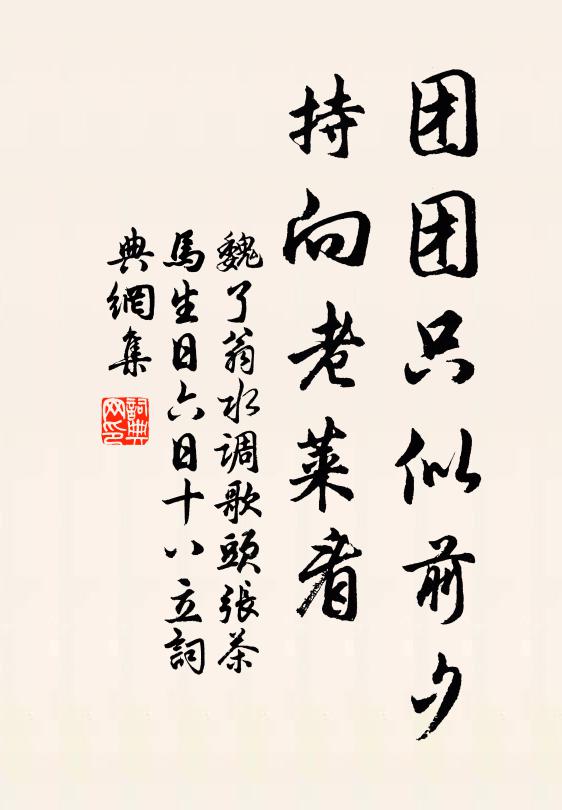 团团只似前夕
持向老莱看
魏了翁水调歌頭張茶
馬生日六日十八立詞
典網集
詞典
网印